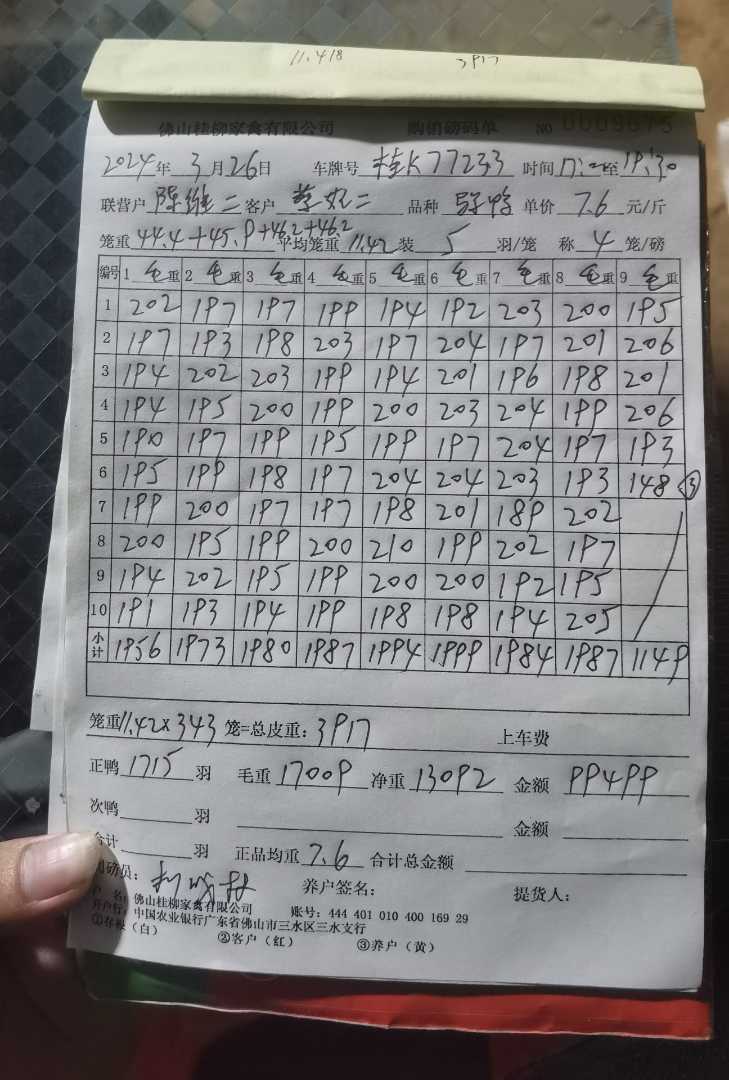 11.418 3917
佛山桂柳家禽有限公司 购销磅码单 NO 0009675
2024年 3月26日 车牌号 桂K77233 时间 至19:30
联营户 陈继二 客户 品种 单价 7.6 元/斤
笼重 44.4+45.9+46.2+46.2 平均笼重 11.42 装 5 羽/笼 称 4 笼/磅
编号 1 毛重 2 毛重 3 毛重 4 毛重 5 毛重 6 毛重 7 毛重 8 毛重 9 毛重
1 202 197 197 199 194 192 203 200 195
2 197 193 198 203 197 204 197 201 206
3 194 202 203 199 194 201 196 198 201
4 194 195 200 199 200 203 204 199 206
5 190 197 199 195 199 197 204 197 193
6 195 199 198 197 204 204 203 193 148 ③
7 199 200 197 197 198 201 189 202
8 200 195 199 200 210 199 202 197
9 194 202 195 199 200 200 192 195
10 191 193 194 199 198 198 194 205
小计 1956 1973 1980 1987 1994 1999 1984 1987 1149
笼重11.42×343 笼=总皮重：3917 上车费
正鸭 1715 羽 毛重 17009 净重 13092 金额 99499
次鸭 羽 金额
合计 羽 正品均重 7.6 合计总金额
司磅员： 养户签名： 提货人：
户 名：佛山桂柳家禽有限公司 账号：444 401 010 400 169 29
开户行：中国农业银行广东省佛山市三水区三水支行
①存根（白） ②客户（红） ③养户（黄）